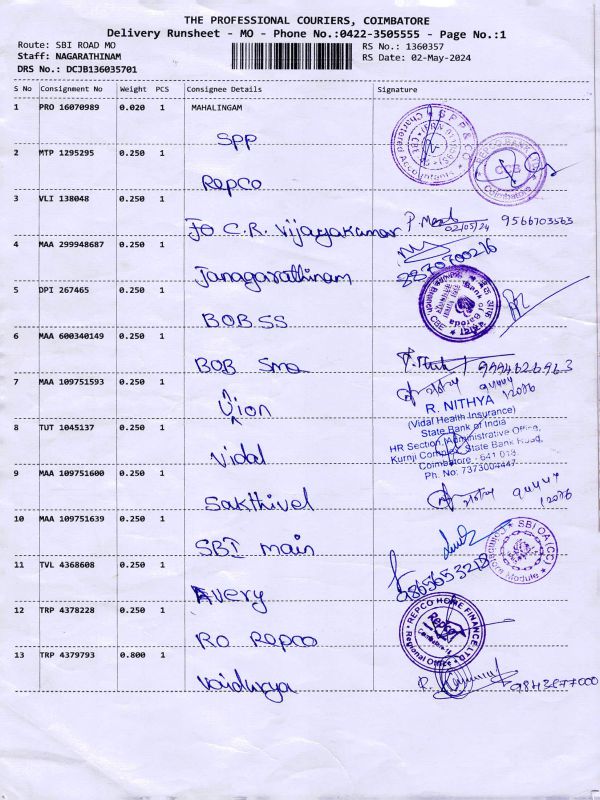 THE PROFESSIONAL COURIERS, COIMBATORE
Delivery Runsheet - MO - Phone No.:0422-3505555 - Page No.:1
Route: SBI ROAD MO
RS No.: 1360357
Staff: NAGARATHINAM
RS Date: 02-May-2024
DRS No.: DCJB136035701
S No Consignment No Weight PCS Consignee Details Signature
1 PRO 16070989 0.020 1 MAHALINGAM
SPP
SPP & CO
Chartered Accountants
2 MTP 1295295 0.250 1
Repco
REPCO BANK
Coimbatore
3 VLI 138048 0.250 1
Jo C.R. Vijayakumar 02/05/24 9566703563
4 MAA 299948687 0.250 1
Janagarathinam 8870700216
5 DPI 267465 0.250 1
BOB SS
Bank of Baroda
6 MAA 600340149 0.250 1
BOB Sme 9994626963
7 MAA 109751593 0.250 1
Union
R. NITHYA
(Vidal Health Insurance)
State Bank of India
HR Section, Administrative Office,
Kurnji Complex, State Bank Road,
Coimbatore - 641 018.
Ph. No: 7373004447
8 TUT 1045137 0.250 1
Vidal
9 MAA 109751600 0.250 1
Sakthivel
10 MAA 109751639 0.250 1
SBI main
SBI OA (CC)
Coimbatore Module
11 TVL 4368608 0.250 1
Avery 9865653218
12 TRP 4378228 0.250 1
RO Repco
REPCO HOME FINANCE LTD.
Regional Office
13 TRP 4379793 0.800 1
Vaidurya